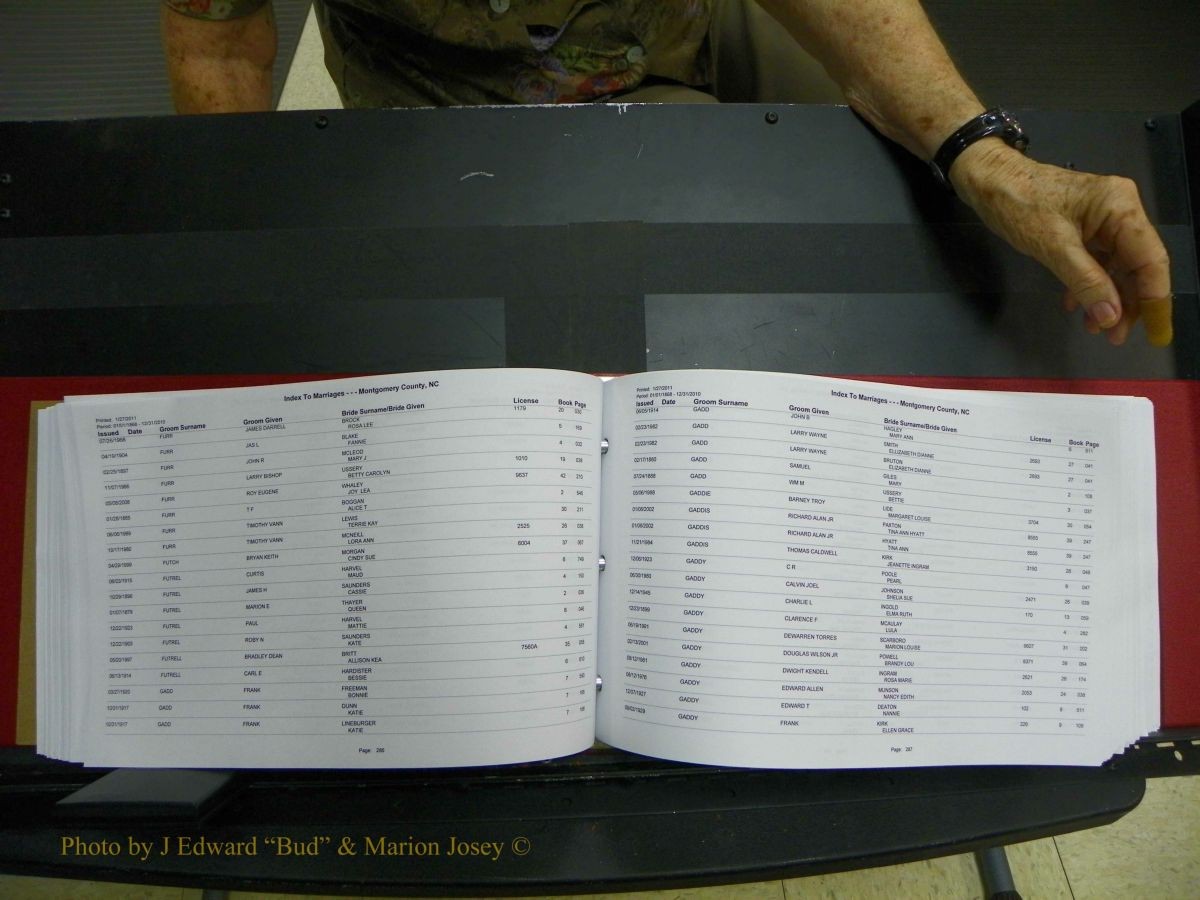 Index To Marriages - - - Montgomery County, NC
Printed: 1/27/2011
Period: 01/01/1868 - 12/31/2010
Issued Date Groom Surname Groom Given Bride Surname/Bride Given License Book Page
07/26/1966 FURR JAMES DARRELL BROCK 1179 20 030
ROSA LEE
04/19/1904 FURR JAS L BLAKE 5 169
FANNIE
02/25/1897 FURR JOHN R MCLEOD 4 032
MARY J
11/07/1966 FURR LARRY BISHOP USSERY 1010 19 038
BETTY CAROLYN
FURR ROY EUGENE WHALEY 9637 42 210
JOY LEA
FURR T F BOGGAN 2 546
ALICE T
FURR TIMOTHY VANN LEWIS 30 211
TERRIE KAY
FURR TIMOTHY VANN MCNEILL 2525 26 038
LORA ANN
04/29/1999 FUTCH BRYAN KEITH MORGAN 6004 37 067
CINDY SUE
FUTREL CURTIS HARVEL 6 749
MAUD
10/29/1896 FUTREL JAMES H SAUNDERS 4
CASSIE
01/07/1879 FUTREL MARION E THAYER 2
QUEEN
12/22/1923 FUTREL PAUL HARVEL 8 046
MATTIE
FUTREL ROBY N SAUNDERS 4 581
KATE
05/20/1997 FUTRELL BRADLEY DEAN BRITT 7560A 35
ALLISON KEA
06/13/1914 FUTRELL CARL E HARDISTER 6 810
BESSIE
03/27/1920 GADD FRANK FREEMAN 7
BONNIE
12/21/1917 GADD FRANK DUNN 7
KATIE
12/21/1917 GADD FRANK LINEBURGER 7
KATIE
Page: 286
Index To Marriages - - - Montgomery County, NC
Printed: 1/27/2011
Period: 01/01/1868 - 12/31/2010
Issued Date Groom Surname Groom Given Bride Surname/Bride Given License Book Page
06/05/1914 GADD JOHN B HAGLEY 6 811
MARY ANN
02/23/1982 GADD LARRY WAYNE SMITH 2693 27 041
ELLIZABETH DIANNE
02/23/1982 GADD LARRY WAYNE BRUTON 2693 27 041
ELIZABETH DIANNE
02/17/1880 GADD SAMUEL GILES 2 108
MARY
07/24/1888 GADD WM M USSERY 3 037
BETTIE
05/06/1988 GADDIE BARNEY TROY LIDE 3704 30 054
MARGARET LOUISE
01/08/2002 GADDIS RICHARD ALAN JR PAXTON 8555 39 247
TINA ANN HYATT
01/08/2002 GADDIS RICHARD ALAN JR HYATT 8555 39 247
TINA ANN
11/21/1984 GADDIS THOMAS CALDWELL KIRK 3190 28 048
JEANETTE INGRAM
12/06/1923 GADDY C R POOLE 8 047
PEARL
06/30/1980 GADDY CALVIN JOEL JOHNSON 2471 26 039
SHELIA SUE
12/14/1945 GADDY CHARLIE L INGOLD 170 13 059
ELMA RUTH
12/23/1899 GADDY CLARENCE F MCAULAY 4 282
LULA
06/19/1991 GADDY DEWARREN TORRES SCARBORO 6627 31 202
MARION LOUISE
02/13/2001 GADDY DOUGLAS WILSON JR POWELL 8371 39 064
BRANDY LOU
08/12/1981 GADDY DWIGHT KENDELL INGRAM 2621 26 174
ROSA MARIE
08/12/1976 GADDY EDWARD ALLEN MUNSON 2053 24 038
NANCY EDITH
12/07/1927 GADDY EDWARD T DEATON 102 8 511
NANNIE
09/03/1929 GADDY FRANK KIRK 228 9 108
ELLEN GRACE
Page: 287
Photo by J Edward “Bud” & Marion Josey ©